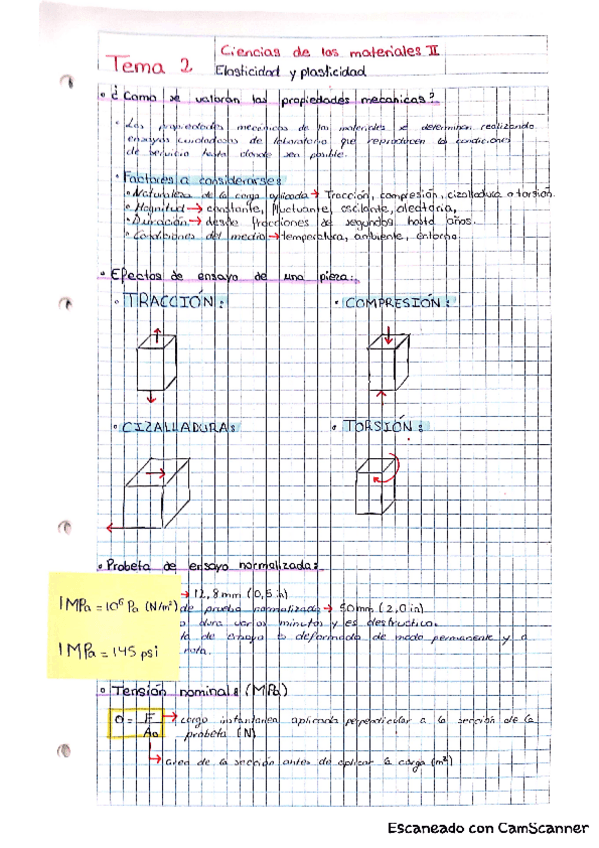 Ciencias de los materiales II
Tema 2
Elasticidad y plasticidad
• ¿Como se valoran las propiedades mecánicas?
• Las propiedades mecánicas de los materiales se determinan realizando
ensayos cuidadosos de laboratorio que reproducen las condiciones
de servicio hasta donde sea posible.
• Factores a considerarse:
• Naturaleza de la carga aplicada → Tracción, compresión, cizalladura o torsión.
• Magnitud → constante, fluctuante, oscilante, aleatoria,
• Duración → desde fracciones de segundos hasta años.
• Condiciones del medio → temperatura, ambiente, entorno
• Efectos de ensayo de una pieza:
• TRACCIÓN:
• COMPRESIÓN:
• CIZALLADURA:
• TORSIÓN:
• Probeta de ensayo normalizada:
→ 12,8 mm (0,5 in)
1 MPa = 10⁶ Pa (N/m²)
de prueba normalizada → 50 mm (2,0 in)
dura varios minutos y es destructivo.
de ensayo es deformada de modo permanente y a
1 MPa = 145 psi
rota.
• Tensión nominal: (MPa)
σ = F → carga instantánea aplicada perpendicular a la sección de la
A₀ probeta (N)
→ área de la sección antes de aplicar la carga (m²)
Escaneado con CamScanner